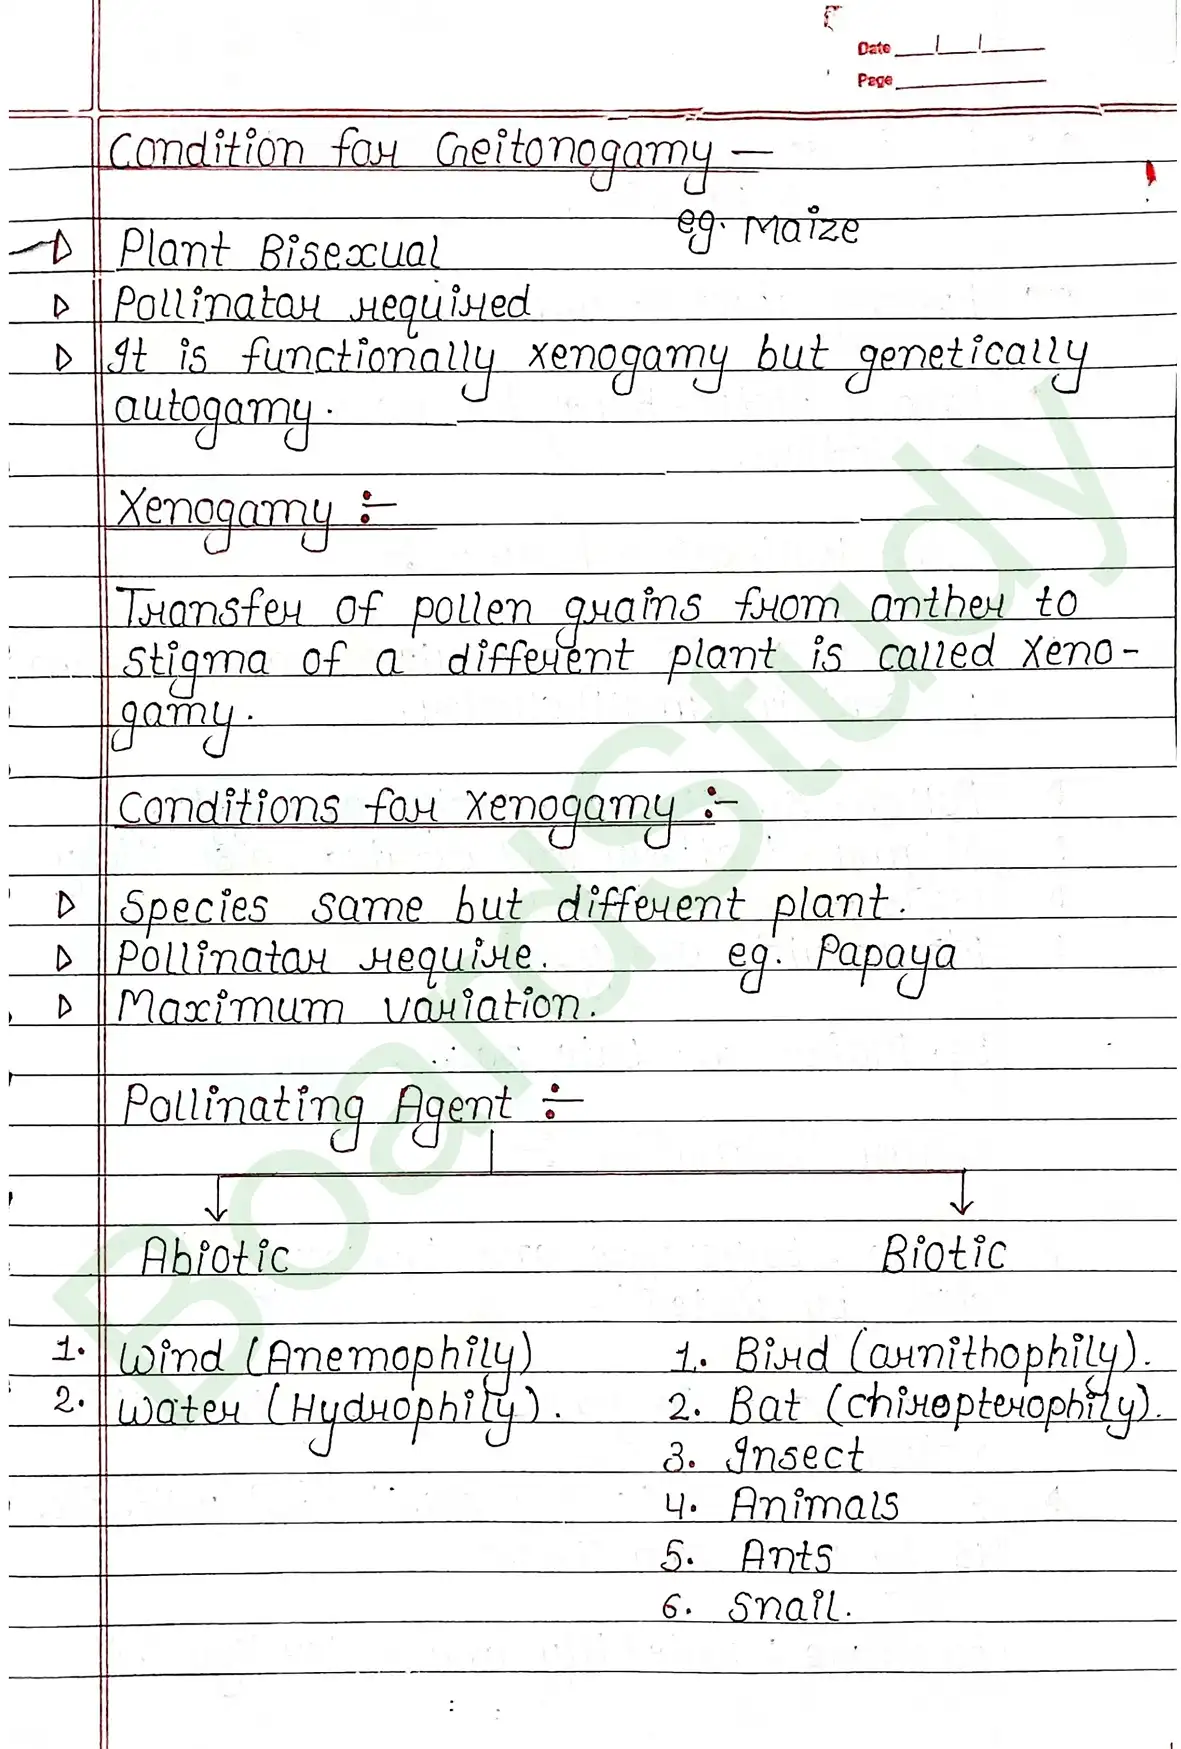 Date
Page
Condition for Geitonogamy —
eg. Maize
Plant Bisexual
Pollinator required
It is functionally xenogamy but genetically
autogamy.
Xenogamy :-
Transfer of pollen grains from anther to
stigma of a different plant is called Xeno-
gamy.
Conditions for Xenogamy :-
Species same but different plant.
Pollinator require. eg. Papaya
Maximum variation.
Pollinating Agent :-
Abiotic Biotic
1. Wind (Anemophily) 1. Bird (ornithophily).
2. Water (Hydrophily). 2. Bat (chiropterophily).
3. Insect
4. Animals
5. Ants
6. Snail.
BoardStudy